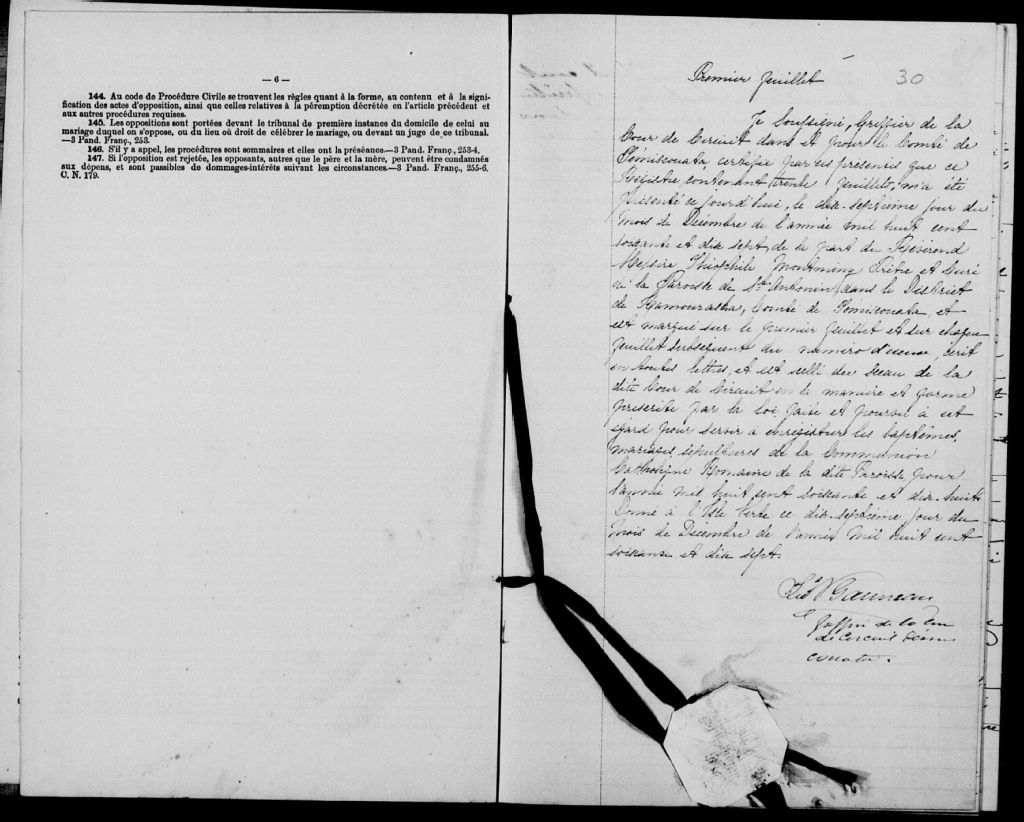 — 6 —
144. Au code de Procédure Civile se trouvent les règles quant à la forme, au contenu et à la signi-
fication des actes d'opposition, ainsi que celles relatives à la péremption décrétée en l'article précédent et
aux autres procédures requises.
145. Les oppositions sont portées devant le tribunal de première instance du domicile de celui au
mariage duquel on s'oppose, ou du lieu où droit de célébrer le mariage, ou devant un juge de ce tribunal.
—3 Pand. Franç., 253.
146. S'il y a appel, les procédures sont sommaires et elles ont la préséance.—3 Pand. Franç., 253-4.
147. Si l'opposition est rejetée, les opposants, autres que le père et la mère, peuvent être condamnés
aux dépens, et sont passibles de dommages-intérêts suivant les circonstances.—3 Pand. Franç., 255-6.
C. N. 179.
Premier feuillet 30
Je Soussigné, Greffier de la
Cour de Circuit dans et pour le Comté de
Témiscouata, certifie par ces présentes que ce
Régistre contenant trente feuillets, m'a été
présenté ce jourd'hui, le dix-septième jour du
mois de Décembre de l'année mil huit cent
soixante et dix sept, de la part du Révérend
Messire Théophile Montminy Prêtre et Curé
de la Paroisse de St Antonin, dans le District
de Kamouraska, Comté de Temiscouata, et
est marqué sur le premier feuillet et sur chaque
feuillet subséquent du numéro d'iceux, écrit
en toutes lettres, et est scellé du Sceau de la
dite Cour de Circuit en la manière et forme
prescrite par la loi, faite et pourvu à cet
egard pour servir à enrégistrer les baptêmes,
mariages sépultures de la Communion
Catholique Romaine de la dite Paroisse pour
l'année mil huit cent soixante et dix-huit
Donné à l'Isle Verte ce dix-septième jour du
mois de Décembre de l'année mil huit cent
soixante et dix sept.
Greffier de la Cour
de Circuit Témis
couata.